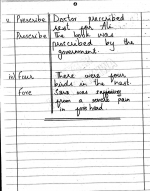 v. Prescribe Doctor prescribed
rest for Ali.
Proscribe The book was
proscribed by the
government.
iv) Four There were four
birds in the nest.
Fore Sara was
from a severe pain
in fore hand